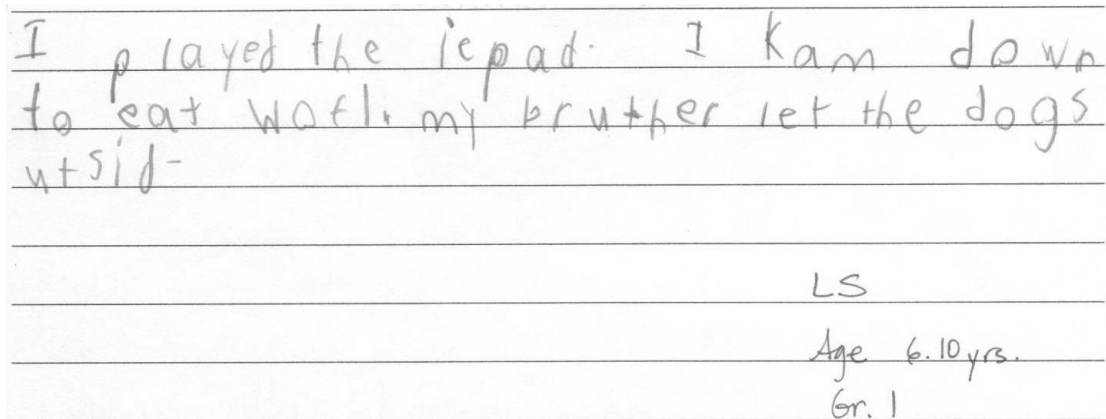 I played the iepad. I Kam down
to eat wofl. my bruther let the dogs
utsid-
LS
Age 6.10 yrs.
Gr. 1